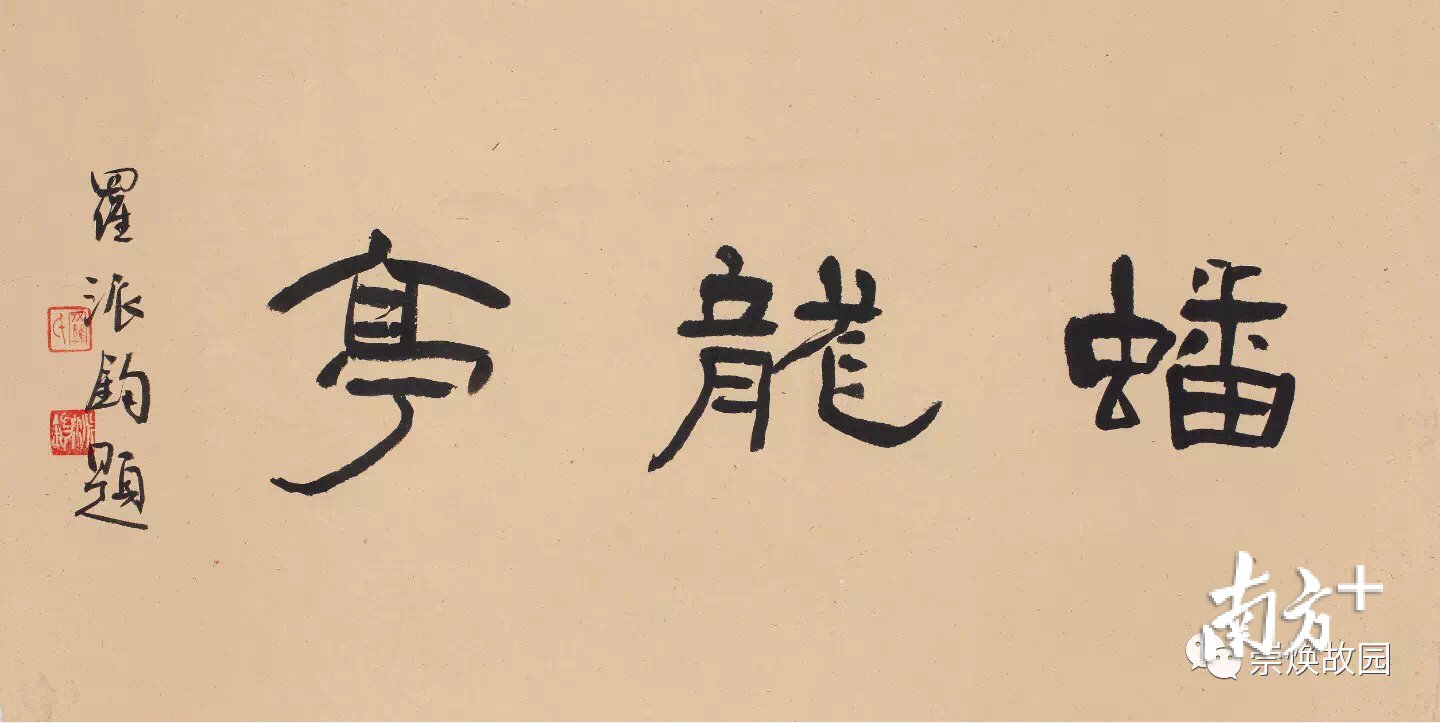 蟠龍亭
羅派鈞題
南方+
崇焕故园